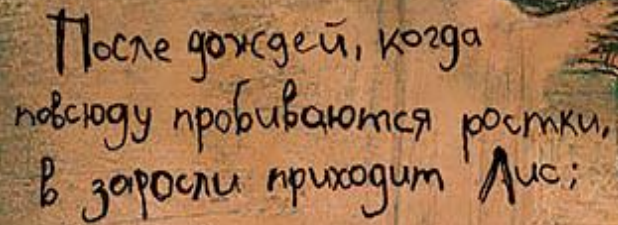 После дождей, когда
повсюду пробиваются ростки,
в заросли приходит Лис;